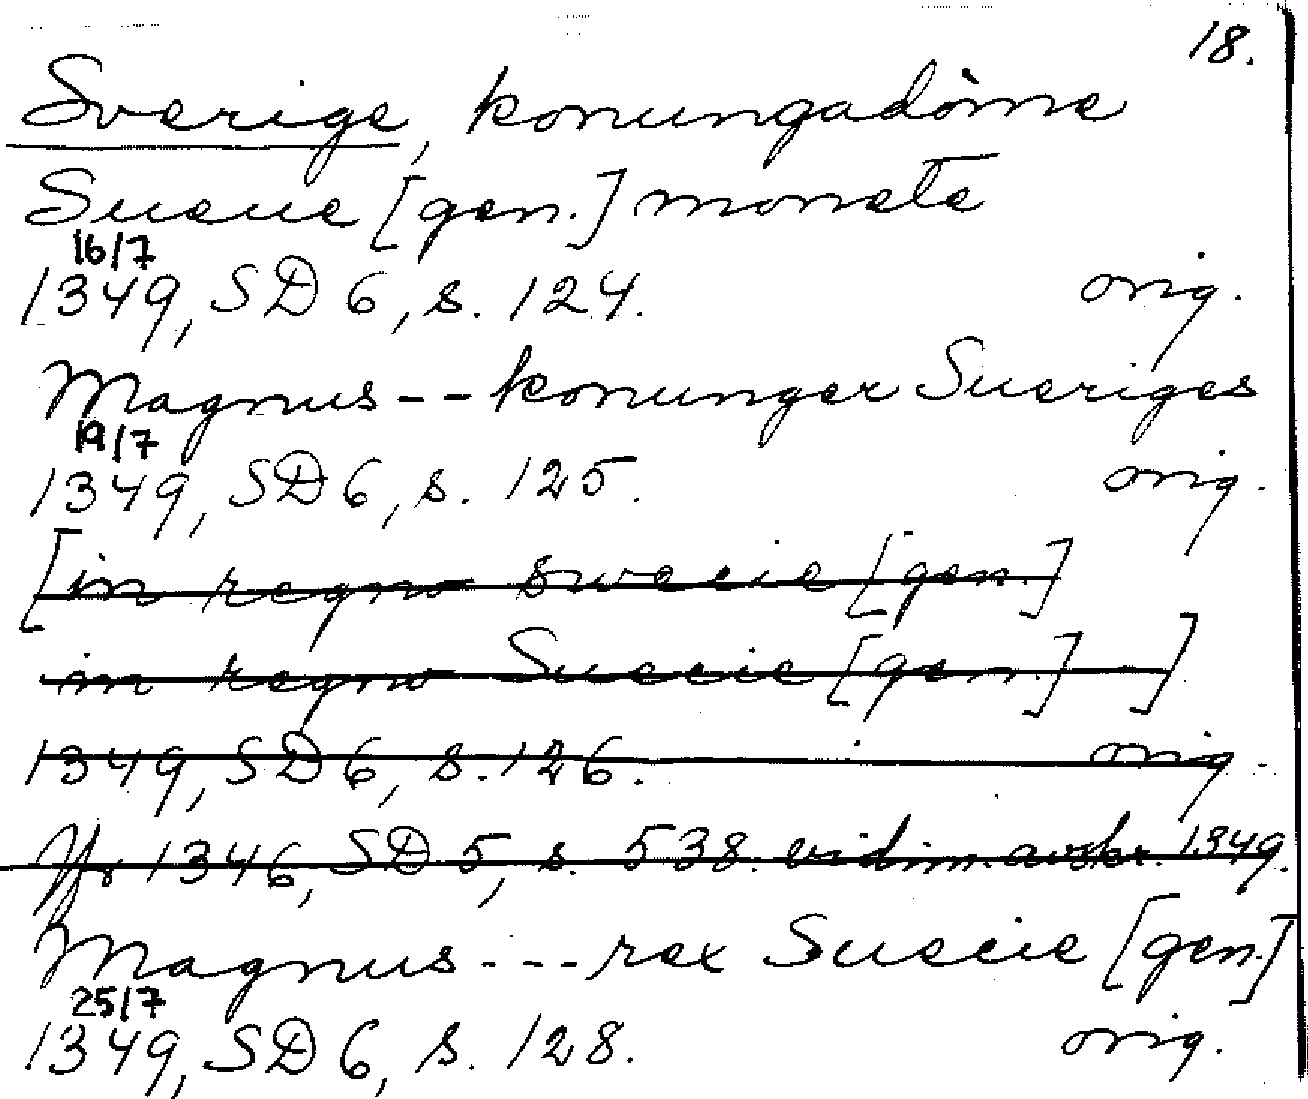 18.
Sverige, konungadöme
Sueue [gen.] monete
16/7
1349, SD 6, s. 124. orig.
Magnus -- konunger Sueriges
19/7
1349, SD 6, s. 125. orig.
[in regno Swecie [gen.]
in regno Suecie [gen.] ]
1349, SD 6, s. 126. orig.
Jfr 1346, SD 5, s. 538. vidim. avskr. 1349.
Magnus --- rex Suecie [gen.]
25/7
1349, SD 6, s. 128. orig.